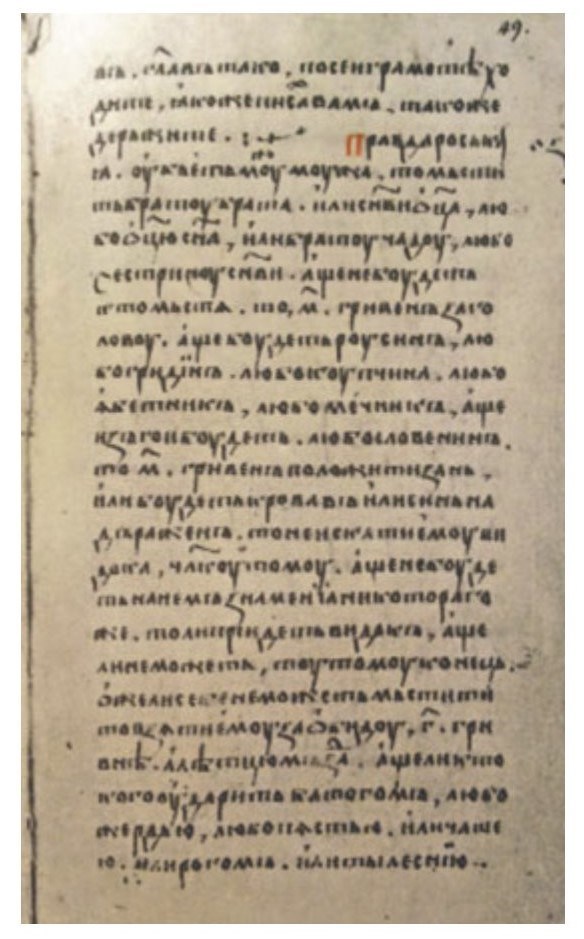 49.
въ. гл҃авъ тако. по сеи грамотѣ хо
дите, ꙗкоже писа вамъ. такоже
держите. Правда роськ
а. оубьеть моу моужа, то мьсти
ть братоу брата. или сн҃ви ѡц҃а, лю
бо ѡц҃ю сн҃а, или братоу чадоу, любо
сестриноу сн҃ви. аще не боудеть
кто мьстѧ. то, м҃. гривенъ за го
ловоу. аще боудеть роусинъ, лю
бо гридинъ. любо коупчина. любо
ꙗбетникъ, любо мечникъ, аще
изъгои боудеть. любо словенинъ.
то м҃. гривенъ положити за нь.
или боудеть кровавъ или синь на
дъраженъ. то не искати емоу ви
дока, чл҃коу томоу. аще не боуде
ть на немъ знамениа никотораго
же. то ли приидеть видокъ, аще
ли не можеть, тоу томоу конець.
ѡже ли себе не можеть мьстити
то взѧти емоу за ѡбидоу, г҃. грн
внѣ. а лѣтцю мъзда. аще ли кто
кого оударить батогомъ, любо
жердью, любо пѧстью. или чаше
ю. или рогомъ. или тылеснию.